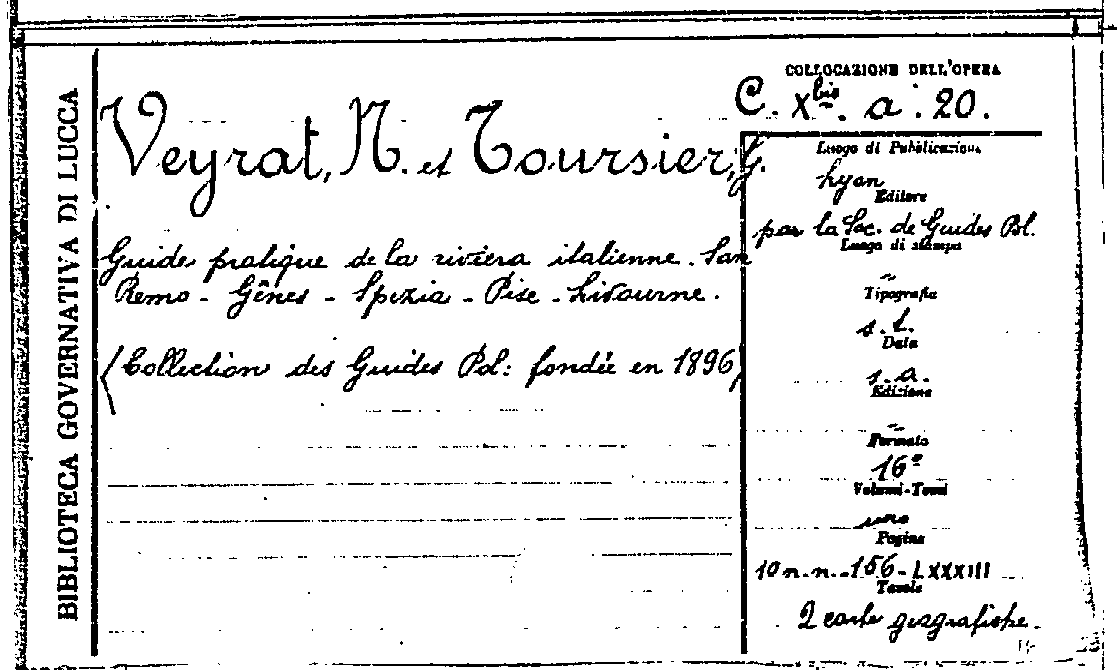 BIBLIOTECA GOVERNATIVA DI LUCCA
Veyrat, N. et Toursier, G.
Guide pratique de la riviera italienne. San
Remo - Gênes - Spezia - Pise - Livourne.
(Collection des Guides Pol: fondée en 1896)
COLLOCAZIONE DELL'OPERA
C. X bis. a. 20.
Luogo di Pubblicazione
Lyon
Editore
par la Soc. de Guides Pol.
Luogo di stampa
~
Tipografia
s. t.
Data
s. a.
Edizione
~
Formato
16°
Volumi-Tomi
uno
Pagine
10 n. n. - 156 - LXXXIII
Tavole
2 carte geografiche.